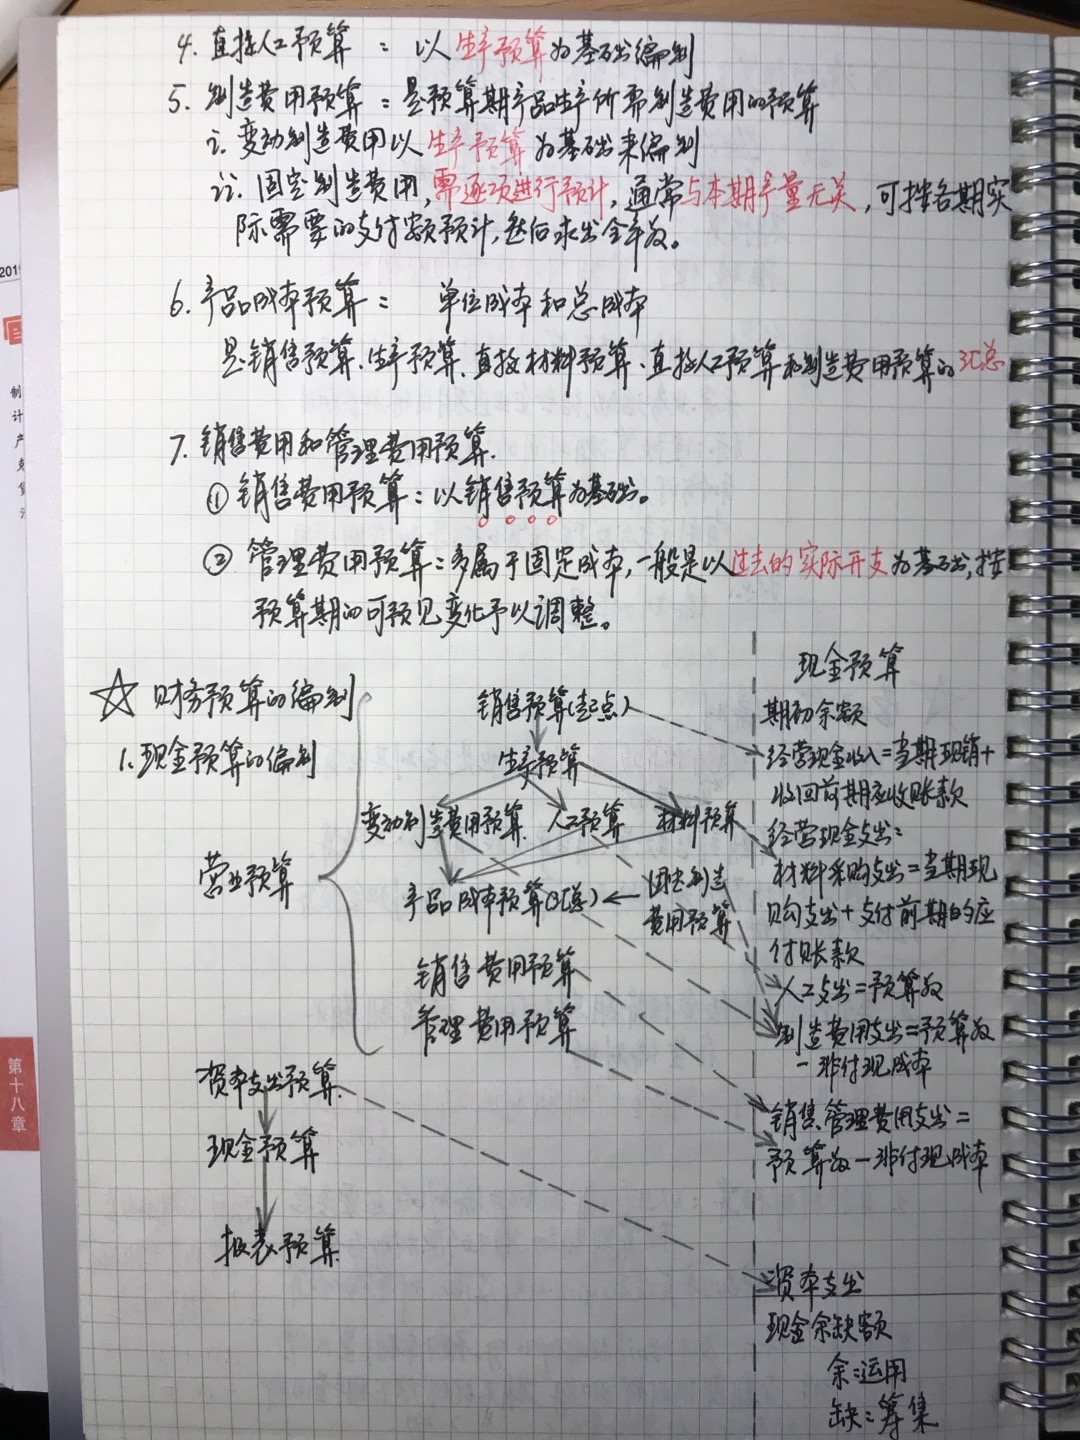 4. 直接人工预算：以生产预算为基础编制
5. 制造费用预算：是预算期产品生产所需制造费用的预算
i. 变动制造费用以生产预算为基础来编制
ii. 固定制造费用,需逐项进行预计,通常与本期产量无关,可按各期实
际需要的支付额预计,然后求出全年数。
6. 产品成本预算：单位成本和总成本
是销售预算、生产预算、直接材料预算、直接人工预算和制造费用预算的汇总
7. 销售费用和管理费用预算.
① 销售费用预算：以销售预算为基础。
② 管理费用预算：多属于固定成本,一般是以过去的实际开支为基础,按
预算期的可预见变化予以调整。
☆ 财务预算的编制
1. 现金预算的编制
营业预算
销售预算(起点)
生产预算
变动制造费用预算 人工预算 材料预算
产品成本预算(汇总)
固定制造
费用预算
销售费用预算
管理费用预算
资本支出预算
现金预算
报表预算
现金预算
期初余额
经营现金收入=当期现销+
收回前期应收账款
经营现金支出：
材料采购支出=当期现
购支出+支付前期的应
付账款
人工支出=预算数
制造费用支出=预算数
-非付现成本
销售、管理费用支出=
预算数-非付现成本
资本支出
现金余缺额
余：运用
缺：筹集
201
制
计
产
第十八章